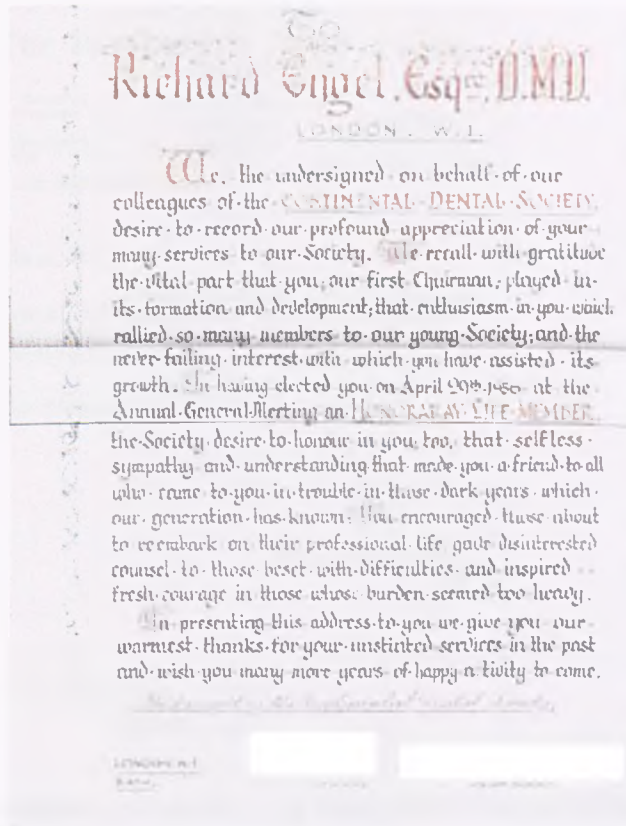 To
Richard Engel, Esqre, D.M.D.
LONDON. W.1.
We, the undersigned on behalf of our
colleagues of the CONTINENTAL DENTAL SOCIETY,
desire to record our profound appreciation of your
many services to our Society. We recall with gratitude
the vital part that you, our first Chairman, played in
its formation and development; that enthusiasm in you which
rallied so many members to our young Society; and the
never-failing interest with which you have assisted its
growth. In having elected you on April 29th at the
Annual General Meeting an HONORARAY LIFE MEMBER,
the Society desire to honour in you too, that selfless
sympathy and understanding that made you a friend to all
who came to you in trouble in those dark years which
our generation has known. You encouraged those about
to reembark on their professional life gave disinterested
counsel to those beset with difficulties and inspired
fresh courage in those whose burden seemed too heavy.
In presenting this address to you we give you our
warmest thanks for your unstinted services in the past
and wish you many more years of happy a tivity to come.
LONDON W.1